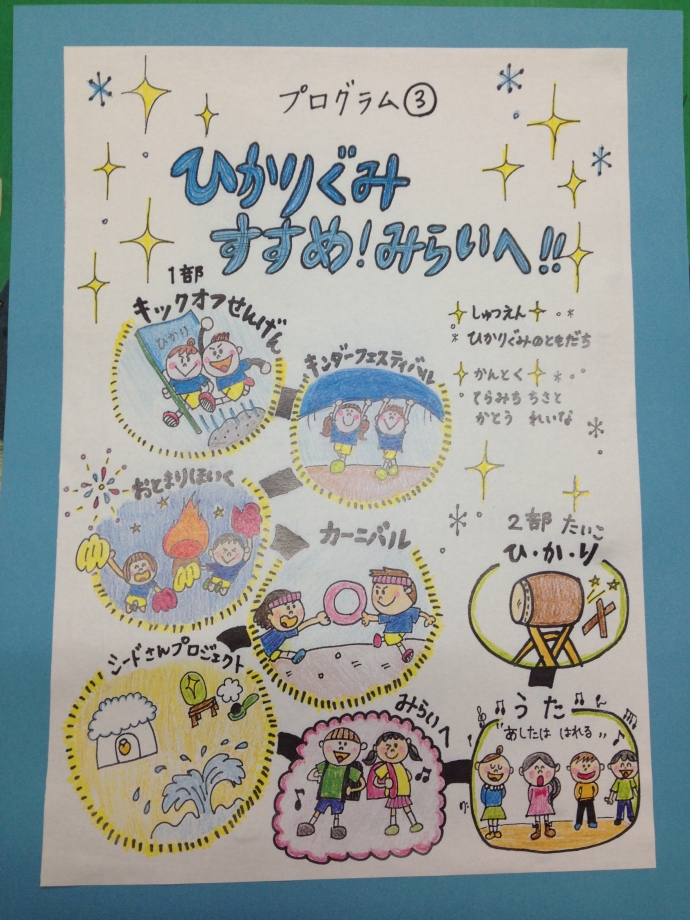 プログラム③
ひかりぐみ
すすめ!みらいへ!!
1部
キックオフせんげん
ひかり
キンダーフェスティバル
しゅつえん
ひかりぐみのともだち
かんとく
てらみち ちさと
かとう れいな
おとまりほいく
カーニバル
シードさんプロジェクト
みらいへ
2部 たいこ
ひ・か・り
うた
"あしたは はれる"